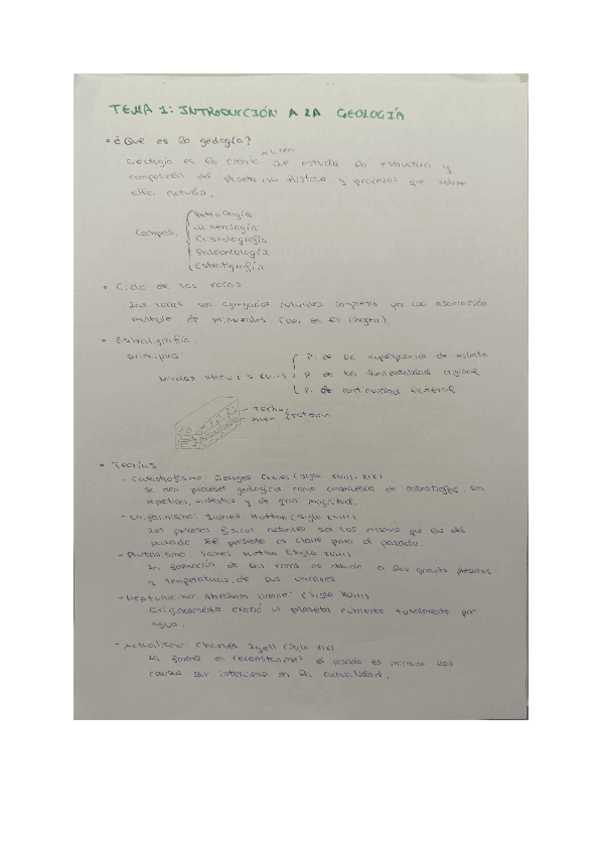 TEMA 1: INTRODUCCIÓN A LA GEOLOGÍA
• ¿Que es la geología?
Geología es la ciencia que estudia la estructura y
composición del planeta, su historia y procesos que sobre
ella actúan.
Campos
Petrología
Mineralogía
Cristalografía
Paleontología
Estratigrafía
• Ciclo de las rocas.
Las rocas son agregados naturales compuesto por una asociación
múltiple de minerales
• Estratigrafía.
principios
P. de la superposición de estratos
P. de la horizontalidad original
P. de continuidad lateral
Techo
Muro
• Teorías
- Catastrofismo: Georges Cuvier (Siglo XVIII-XIX)
procesos geológicos como consecuencia de catástrofes, son
repetitivas, violentas y de gran magnitud.
- Uniformismo: James Hutton (Siglo XVIII)
Los procesos físicos naturales son los mismos que en el
pasado. El presente es clave para el pasado.
- Plutonismo James Hutton (Siglo XVIII)
La formación de las rocas es debido a las grandes presiones
y temperaturas de sus
- Neptunismo: Abraham Werner (Siglo XVIII)
Originalmente existió un planeta cubierto totalmente por
agua.
- Actualismo: Charles Lyell (Siglo XIX)
La forma de reconstruir el pasado es las
causas que en la actualidad.